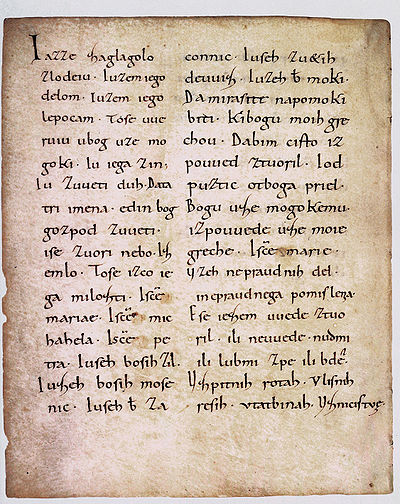 Iazze zaglagolo
zlodeiu. Iuzem iego
delom. Iuzem iego
lepocam. Tose uue
ruiu ubog uze mo
goki. Iu iega zin.
Iu zuueti duh. Data
tri imena. edin bog
gozpod zuueti.
ise zuori nebo. Iz
emlo. Tose izco ie
ga milozti. Iscē
mariae. Iscē mic
hahela. Iscē pe
tra. Iuseh bosih zil.
Iuzeh bosih mose
nic. Iuseh b̄ za
connic. Iuseh zu&ih
deuuiz. Iuzeh b̄ moki.
Da mirasite napomoki
biti. Kibogu moih gre
chou. Dabim cisto iz
pouued ztuoril. Iod
puztic otboga priel.
Bogu uze mogokemu.
izpouuede uze moie
greche. Iscē marie.
uzeh nepraudnih del.
inepraudnega pomislena.
Ese iesem uuede ztuo
ril. ili neuuede. nudmi
ili lubmi zpe ili bde.
Uzpitnih rotah. Vlisnih
resih. Vtatbinah. Uznicistuę.